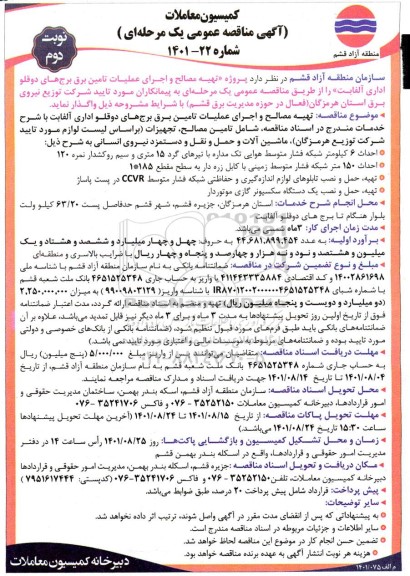 کمیسیون معاملات
(آگهی مناقصه عمومی یک مرحله‌ای)
شماره ۲۲-۱۴۰۱
نوبت دوم
منطقه آزاد قشم
سازمان منطقه آزاد قشم در نظر دارد پروژه «تهیه مصالح و اجرای عملیات تامین برق برج‌های دوقلو
اداری آلفابت» را از طریق مناقصه عمومی یک مرحله‌ای به پیمانکاران مورد تایید شرکت توزیع نیروی
برق استان هرمزگان(فعال در حوزه مدیریت برق قشم) با شرایط مشروحه ذیل واگذار نماید.
موضوع مناقصه: تهیه مصالح و اجرای عملیات تامین برق برج‌های دوقلو اداری آلفابت با شرح
خدمات مندرج در اسناد مناقصه، شامل تامین مصالح، تجهیزات (براساس لیست لوازم مورد تایید
شرکت توزیع هرمزگان)، ماشین آلات و حمل و نقل و دستمزد نیروی انسانی به شرح ذیل:
احداث ۶ کیلومتر شبکه فشار متوسط هوایی تک مداره با تیرهای گرد ۱۵ متری و سیم روکشدار نمره ۱۲۰
احداث ۱۵۰ متر شبکه فشار متوسط زمینی با کابل زره دار به سطح مقطع ۱۸۵*۱
تهیه، حمل و نصب تابلوهای لوازم اندازه‌گیری و حفاظتی شبکه فشار متوسط CCVR در پست پاساژ
تهیه، حمل و نصب یک دستگاه سکسیونر گازی موتوردار
محل انجام شرح خدمات: استان هرمزگان، جزیره قشم، شهر قشم حدفاصل پست ۶۳/۲۰ کیلو ولت
بلوار هنگام تا برج های دوقلو آلفابت
مدت زمان اجرای کار: ۳ ماه شمسی می‌باشد
برآورد اولیه: به عدد ۴۴.۶۸۱.۸۹۹.۴۵۴ به حروف: چهل و چهار میلیارد و ششصد و هشتاد و یک
میلیون و هشتصد و نود و نه هزار و چهارصد و پنجاه و چهار ریال با ضرایب بالاسری و منطقه‌ای
مبلغ و نوع تضمین شرکت در مناقصه: ضمانتنامه بانکی به نام سازمان منطقه آزاد قشم با شناسه ملی
۱۴۰۰۲۸۶۱۶۹۸ و کد اقتصادی ۴۱۱۴۴۳۳۳۵۸۸۴ یا واریز به حساب جاری ۴۶۵۱۵۲۵۳۴۸ بانک ملت شعبه قشم
(دو میلیارد و دویست و پنجاه میلیون ریال) تهیه و ضمیمه اسناد مناقصه ارائه گردد، مدت اعتبار ضمانتنامه
فوق از تاریخ اولین روز تحویل پیشنهادها به مدت ۳ ماه و برای ۳ ماه دیگر نیز قابل تمدید می‌باشد، علاوه بر آن
ضمانتنامه‌های بانکی باید طبق فرم‌های مورد قبول تنظیم شود، (ضمانتنامه بانکی از بانک‌های خصوصی و دولتی
مورد تایید بوده و ضمانتنامه‌های مربوط به موسسات مالی و اعتباری مورد تایید نمی باشد.)
مهلت دریافت اسناد مناقصه: متقاضیان می‌توانند بعد از واریز مبلغ ۵/۰۰۰/۰۰۰ (پنج میلیون) ریال
به حساب جاری شماره ۴۶۵۱۵۲۵۳۴۸ بانک ملت شعبه قشم به نام سازمان منطقه آزاد قشم، از تاریخ
۱۴۰۱/۰۸/۰۴ تا تاریخ ۱۴۰۱/۰۸/۱۴ جهت دریافت اسناد و مدارک مناقصه مراجعه نمایند.
محل تحویل اسناد مناقصه: سازمان منطقه آزاد قشم، اسکله بندر بهمن، ساختمان مدیریت حقوقی و
امور قراردادها، دبیرخانه کمیسیون معاملات ۳۵۲۵۲۱۵۰-۰۷۶ و فاکس ۳۵۲۴۱۷۰۶-۰۷۶
مهلت تحویل پاکات مناقصه: از تاریخ ۱۴۰۱/۰۸/۱۵ تا ۱۴۰۱/۰۸/۲۴ (آخرین مهلت تحویل پیشنهادها
ساعت ۱۵:۳۰ تاریخ ۱۴۰۱/۰۸/۲۴ می‌باشد.)
زمان و محل تشکیل کمیسیون و بازگشایی پاکت‌ها: روز ۱۴۰۱/۰۸/۲۵ رأس ساعت ۱۴ در دفتر
مدیریت امور حقوقی و قراردادها، واقع در اسکله بندر بهمن قشم
مکان دریافت و تحویل اسناد مناقصه: جزیره قشم، اسکله بندر بهمن، مدیریت امور حقوقی و قراردادها
دبیرخانه کمیسیون معاملات، تلفن ۳۵۲۵۲۱۵۰-۰۷۶ و فاکس ۳۵۲۴۱۷۰۶-۰۷۶ (کدپستی: ۷۹۵۱۶۱۷۴۴۴)
پیش پرداخت: قرارداد شامل پیش پرداخت ۲۰ درصد، طبق ضوابط می‌باشد.
سایر توضیحات:
به پیشنهاداتی که پس از انقضای مدت مقرر در آگهی واصل شوند، ترتیب اثر داده نخواهد شد.
سایر اطلاعات و جزئیات مربوطه در اسناد مناقصه مندرج است.
تضمین حسن انجام کار در موضوع این مناقصه لحاظ خواهد شد.
هزینه هر نوبت انتشار آگهی به عهده برنده مناقصه خواهد بود.
دبیرخانه کمیسیون معاملات
م الف ۱۴۰۱/۰۷۵